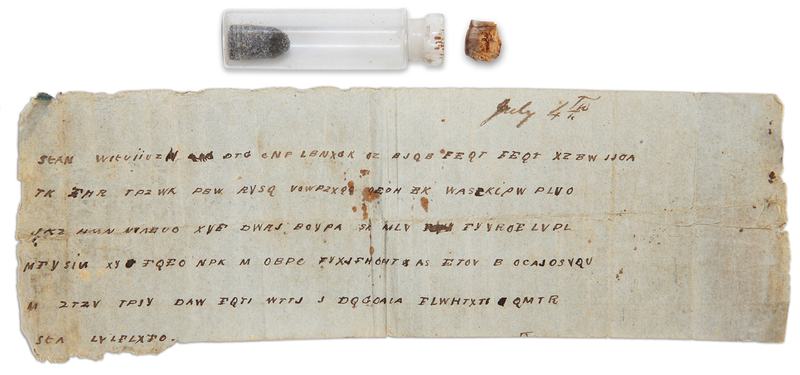 July 4th
SEAN WIEUIIUZH DTG CNP LBNXGK OZ BJQB FEQT FEQT XZBW JJOA
TK FHR TPZWK PBW RYSQ VOWPZXGG OEPF EK WASFKIPW PLVO
JKZ HMN NVAEUD XYE DWRJ BOYPA SX MLV FYYRDE LVPL
MFYSIN XY FQEO NPK M OBPC FYXJFHOHT AS ETOV B OCAJDSVQU
M ZTZV TPHY DAW FQTI WTTJ J DQGOAIA FLWHTXTI QMTR
SEA LVLFLXFO.